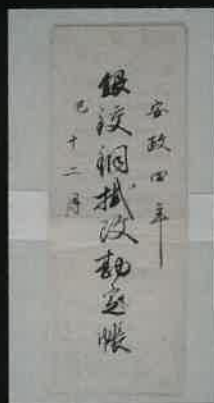 安政四年
銀鋑銅拭汲勘定帳
巳十二月